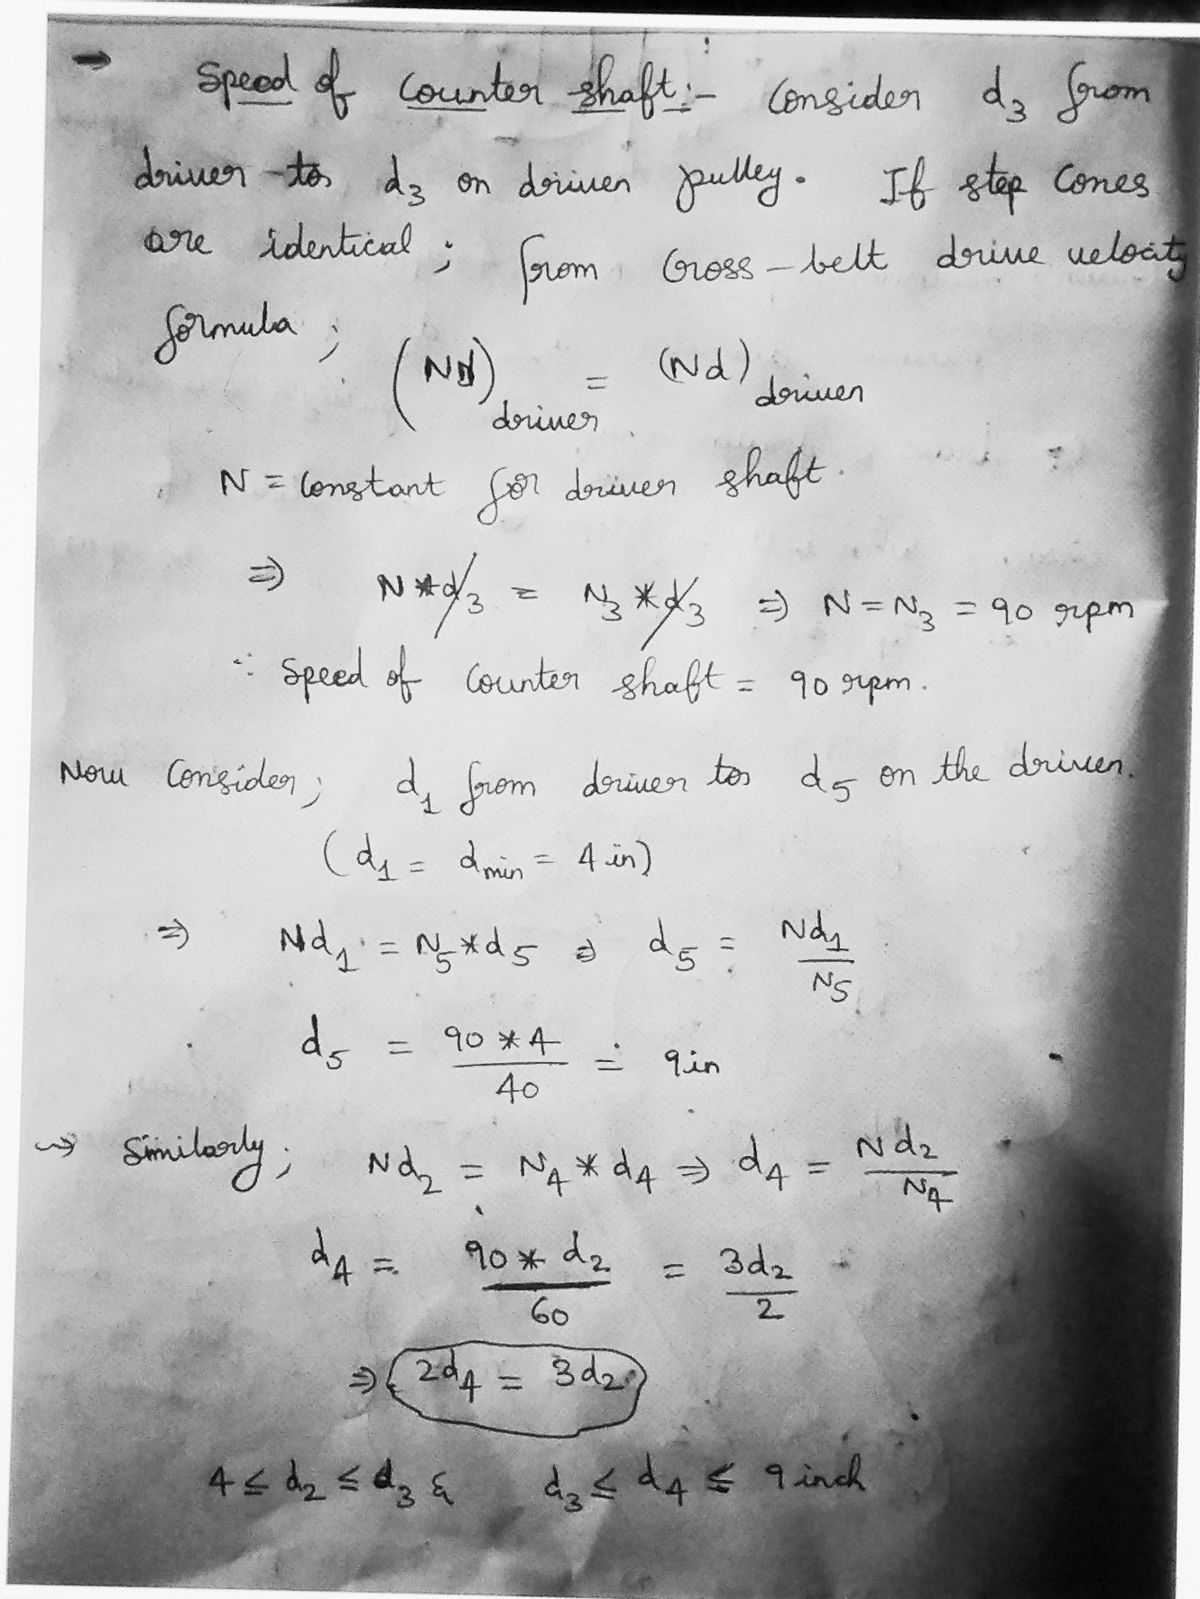 → Speed of Counter shaft:- Consider d₃ from
driver to d₃ on driven pulley. If step Cones
are identical; from Cross-belt drive velocity
formula;
(Nd)driver = (Nd)driven
N = Constant for driver shaft.
⇒ N*d₃ = N₃*d₃ ⇒ N=N₃ = 90 rpm
∴ Speed of Counter shaft = 90 rpm.
Now Consider; d₁ from driver to d₅ on the driven.
(d₁ = dmin = 4 in)
⇒ Nd₁ = N₅*d₅ ⇒ d₅ = Nd₁/N₅
d₅ = 90*4/40 = 9in
→ Similarly; Nd₂ = N₄*d₄ ⇒ d₄ = Nd₂/N₄
d₄ = 90*d₂/60 = 3d₂/2
⇒ 2d₄ = 3d₂
4≤d₂≤d₃ & d₃≤d₄≤9inch